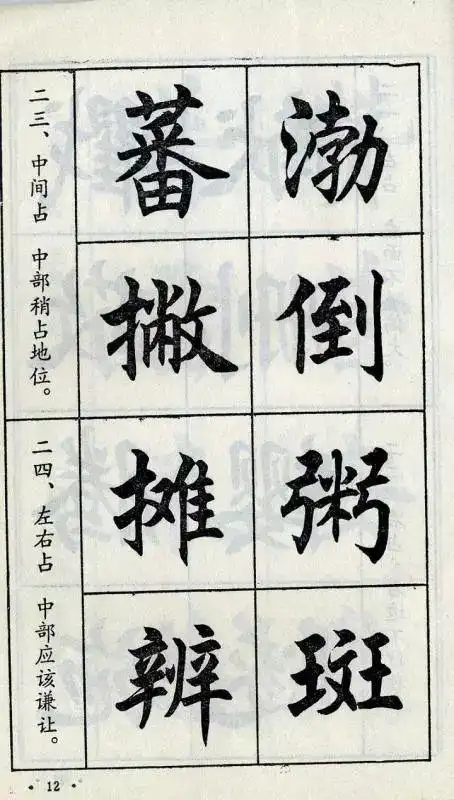 渤倒粥斑
蕃撇摊辨
二三、中间占 中部稍占地位。
二四、左右占 中部应该谦让。
·12·